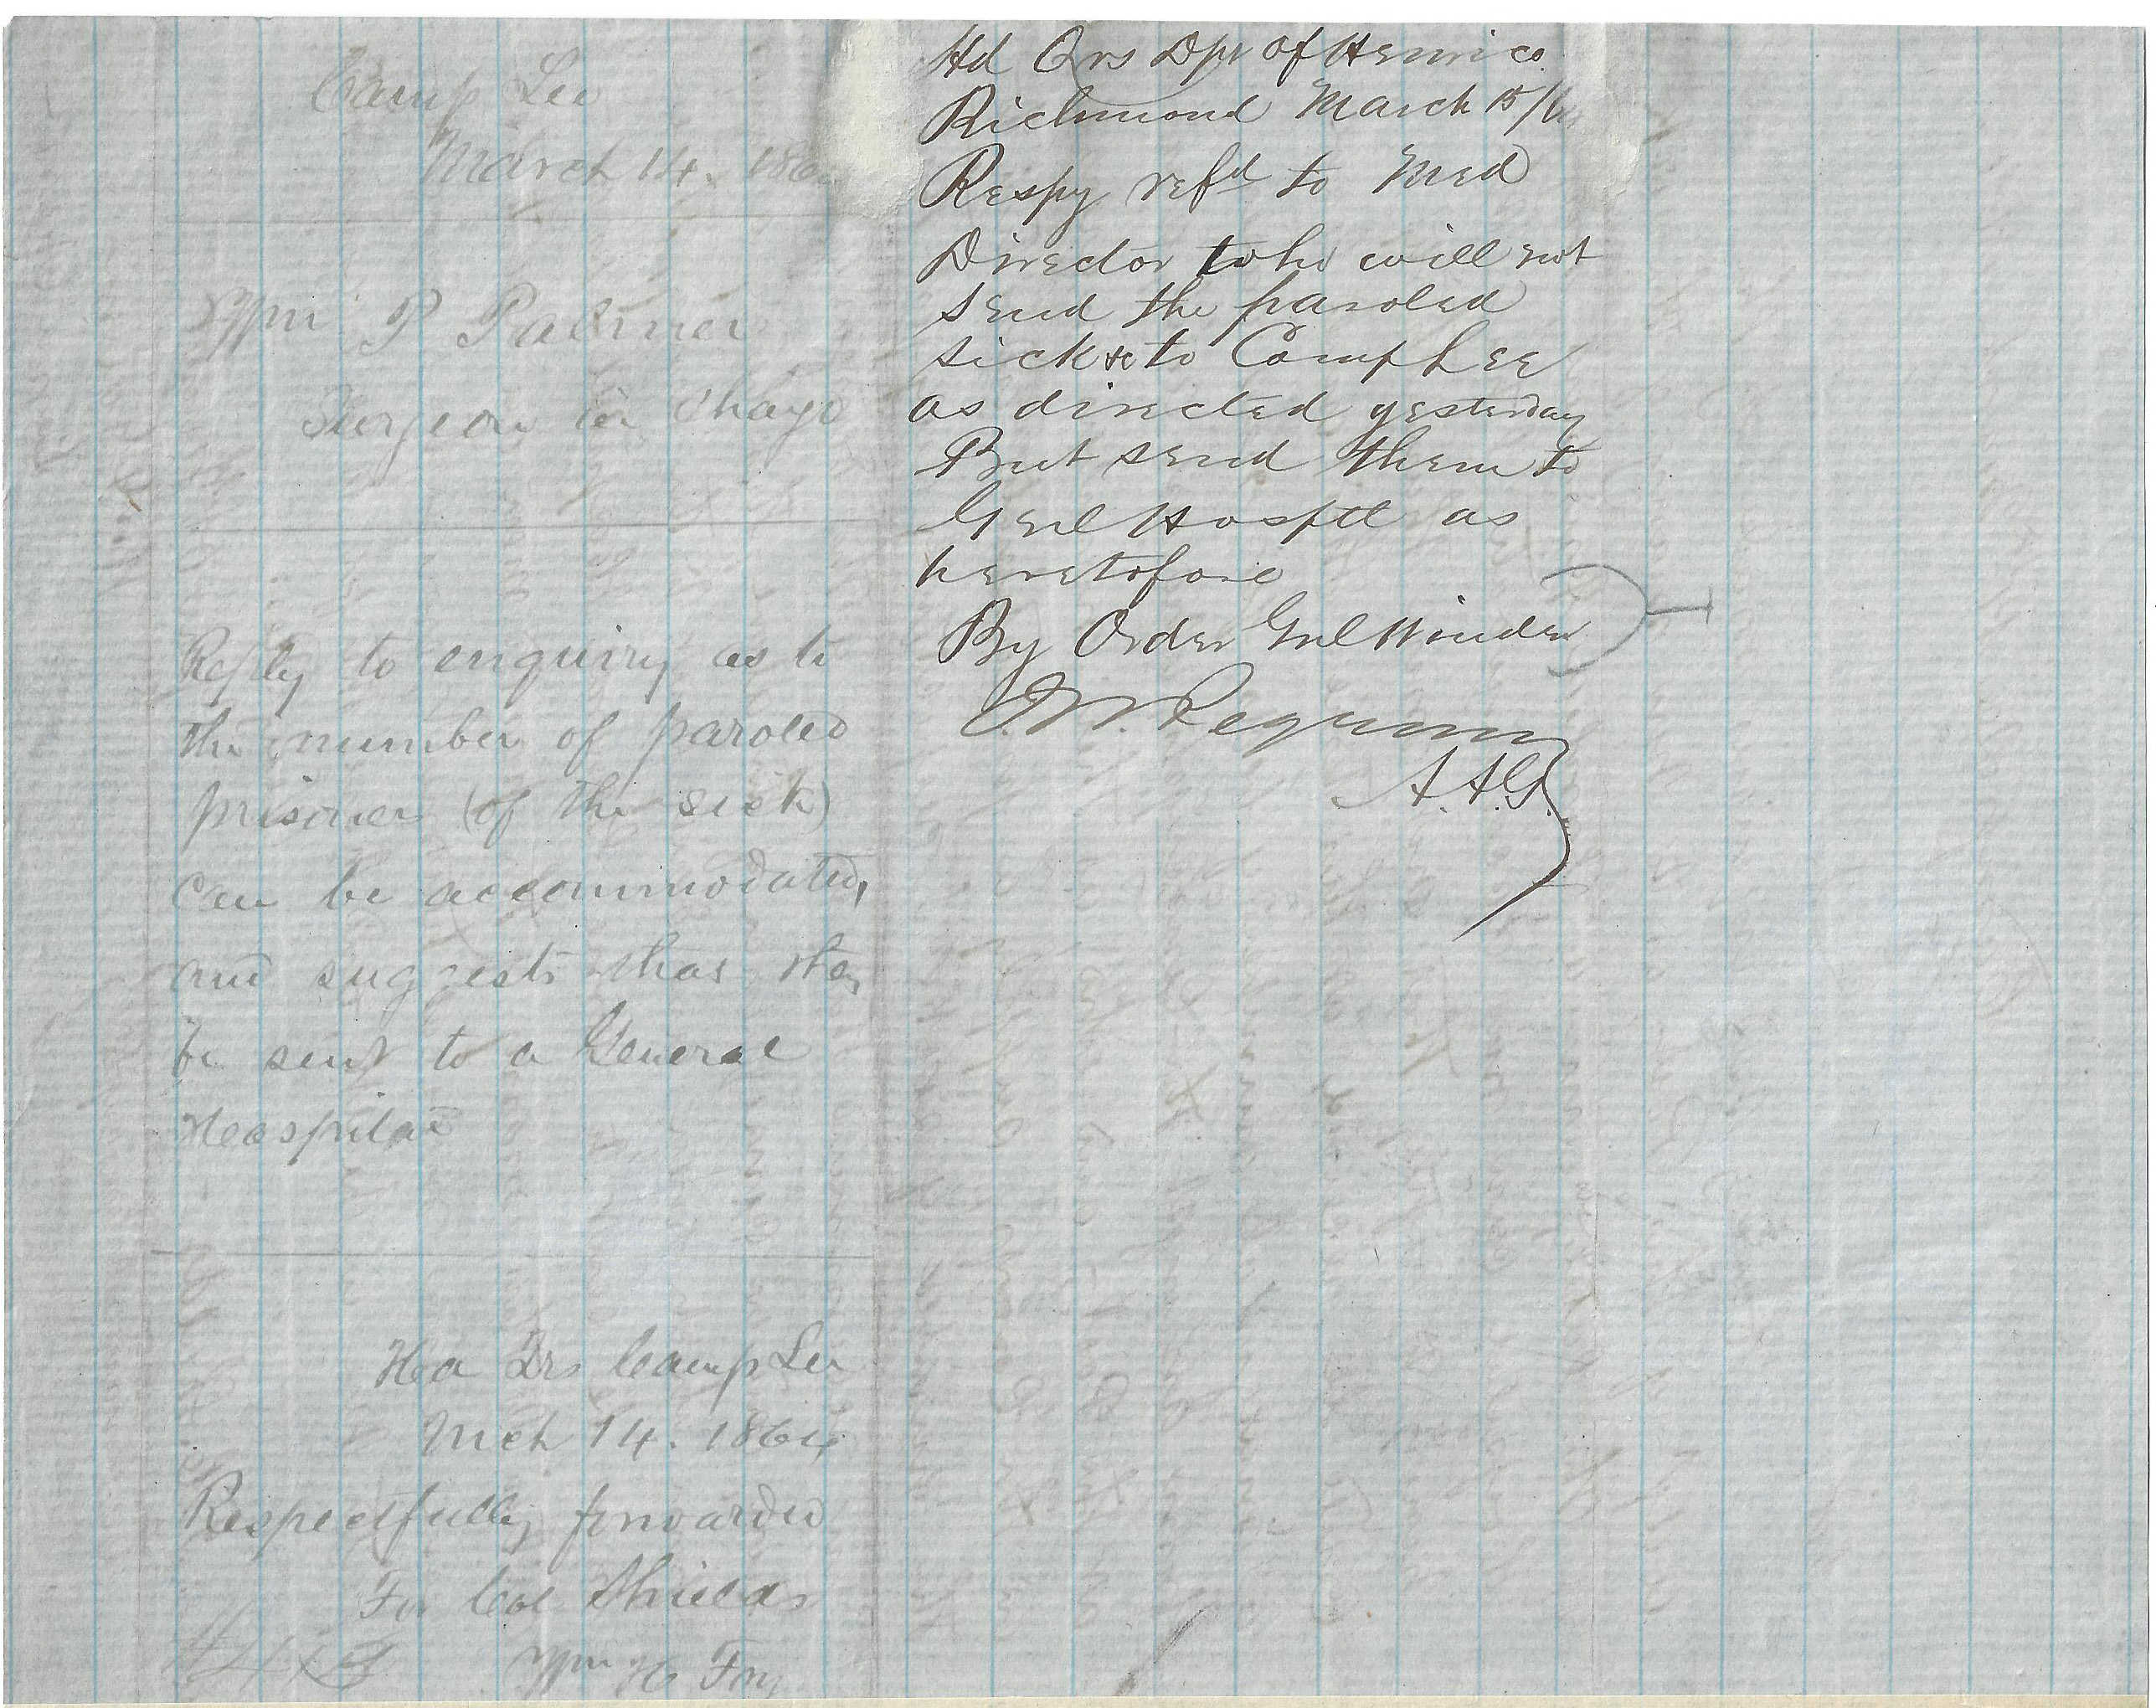 Camp Lee
March 14. 186
Wm P Palmer
Surgeon in Charge
Reply to enquiry as to
the number of paroled
prisoners (of the sick)
can be accommodated,
and suggests that they
be sent to a General
Hospital
Hd Qrs Camp Lee
Mch 14. 1864
Respectfully forwarded
For Col Shields
Wm H Fry
Hd Qrs Dpt of Henrico
Richmond March 15/6
Respy refd to Med
Director who will not
send the paroled
sick &c to Camp Lee
as directed yesterday
But send them to
Genl Hosptl as
heretofore
By Order Gnl Winder
J. W. Pegram
A. A. G.